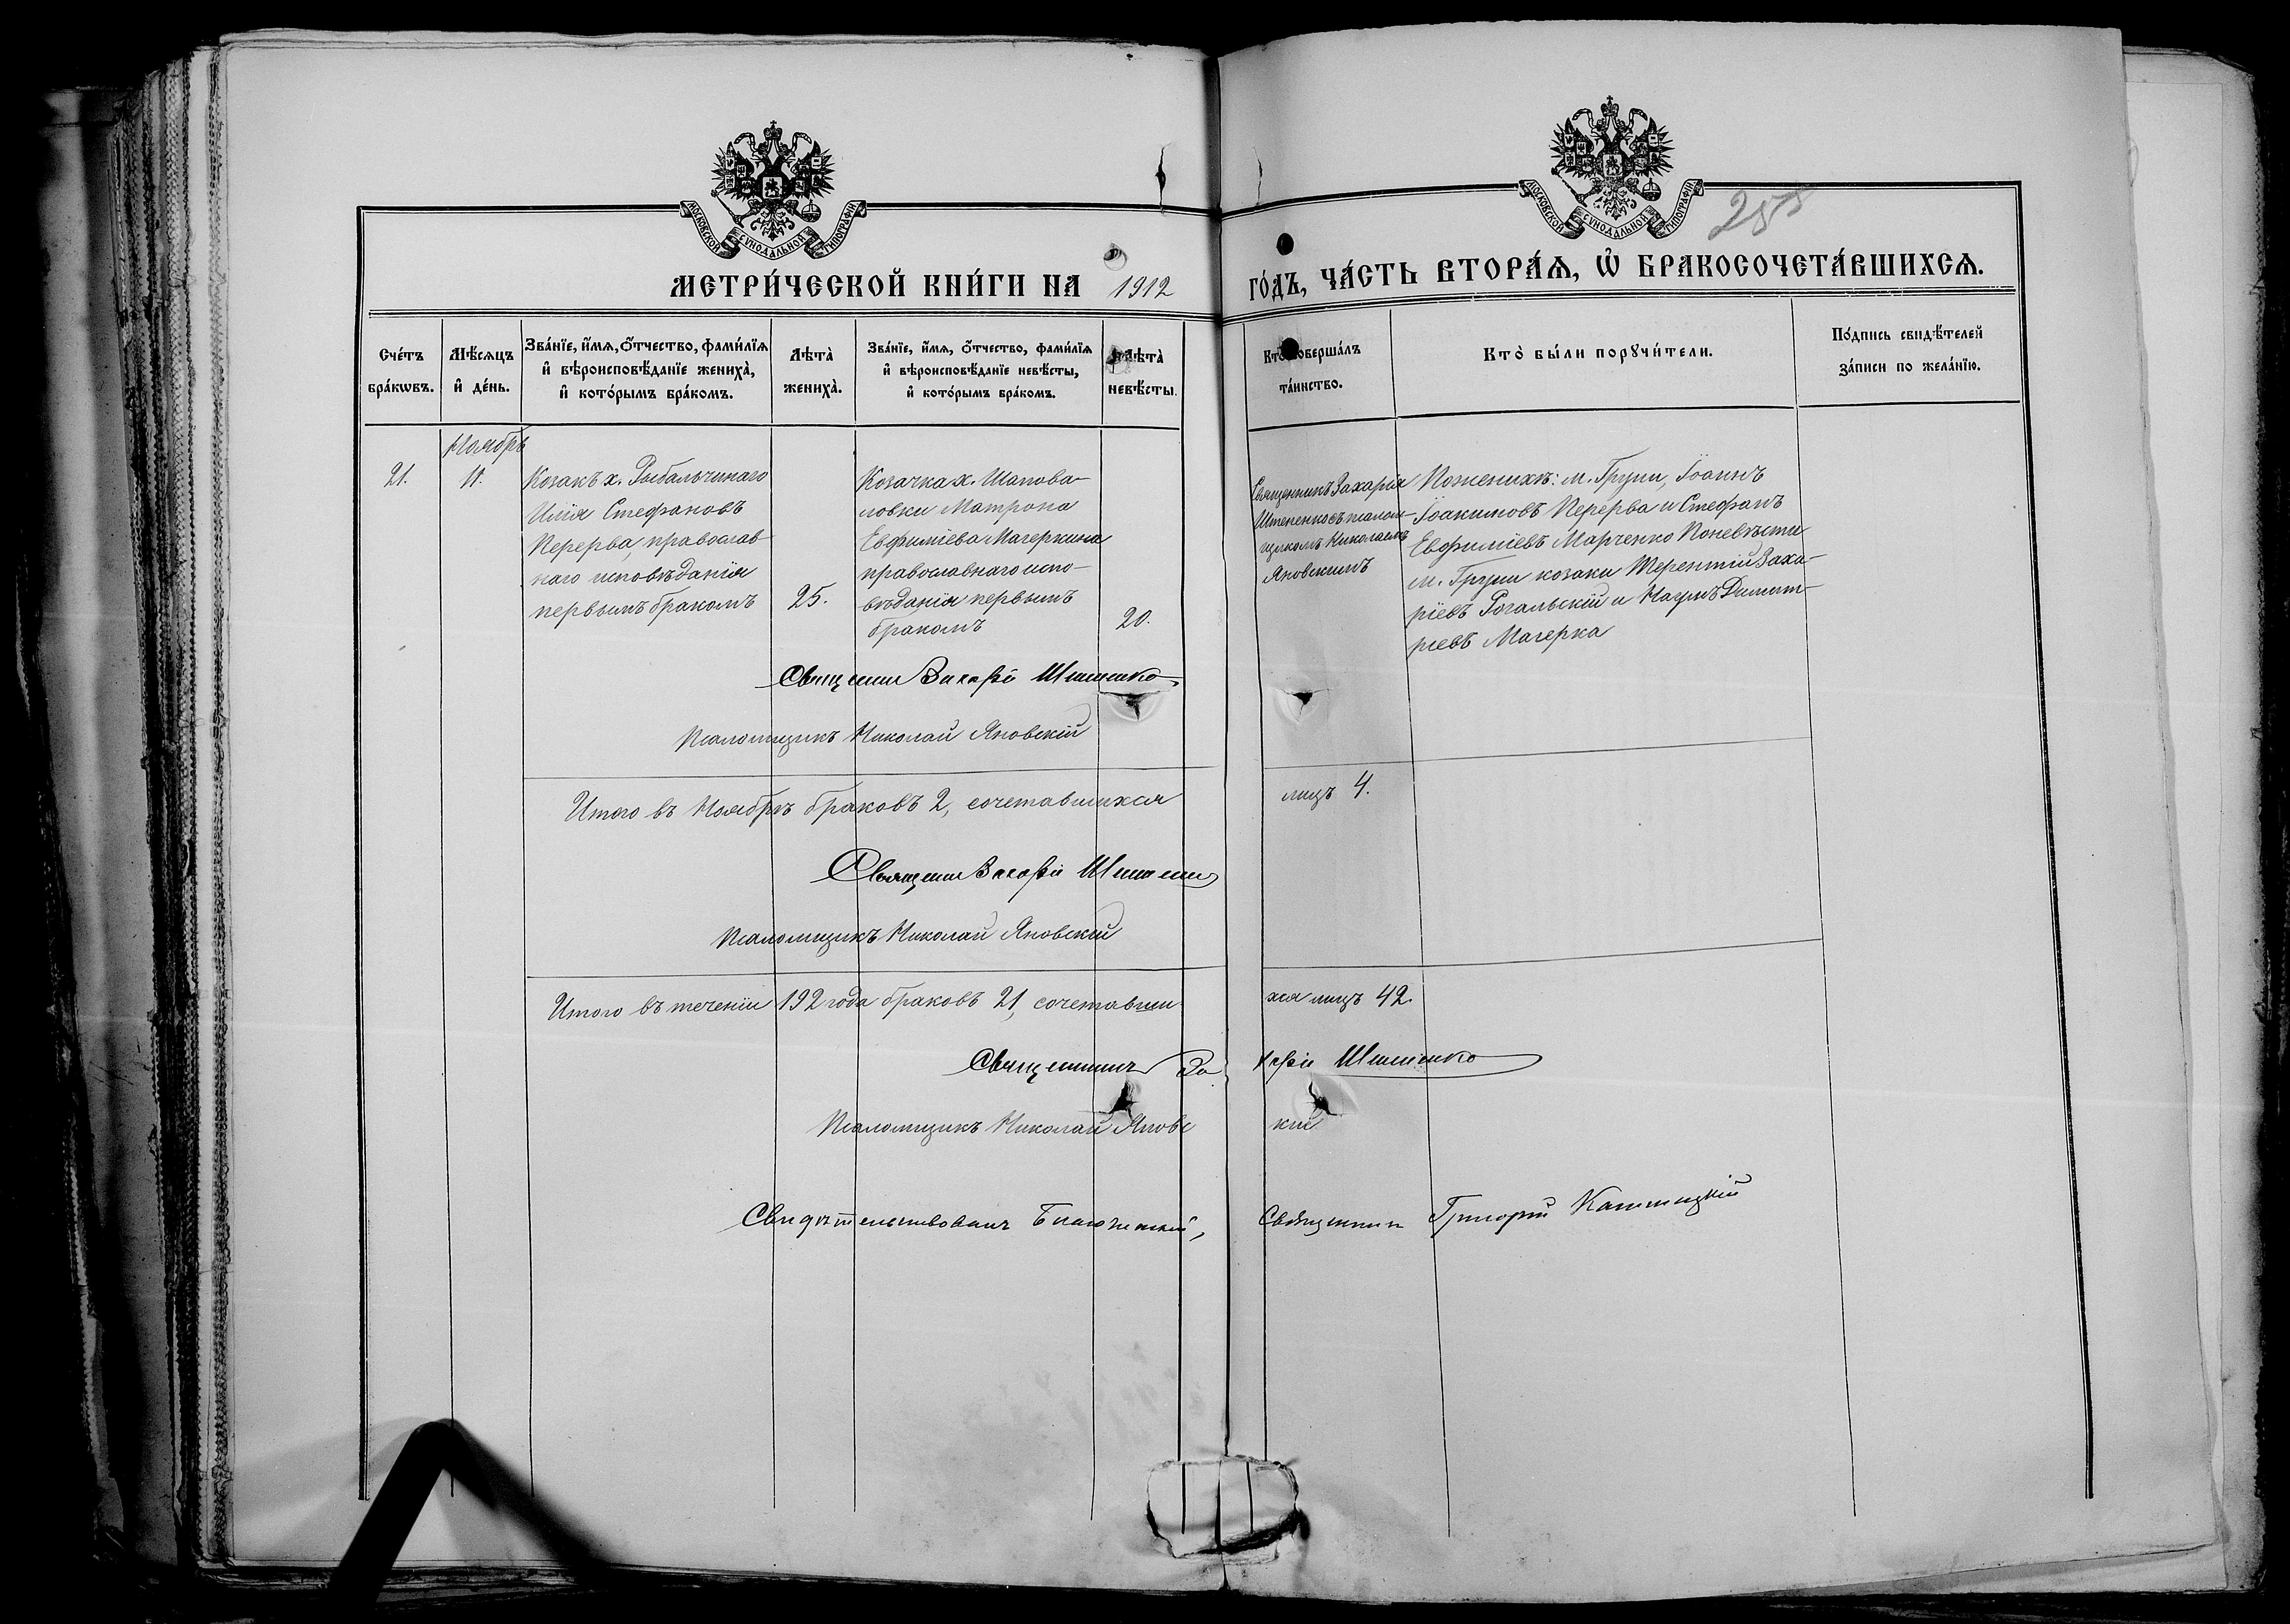 МОСКОВСКОЙ СУНОДАЛЬНОЙ ТИПОГРАФІИ
МОСКОВСКОЙ СУНОДАЛЬНОЙ ТИПОГРАФІИ
255
МЕТРИ́ЧЕСКОЙ КНИ́ГИ НА 1912 ГО́ДЪ, ЧА́СТЬ ВТОРА́Ѧ, Ѡ҆ БРАКОСОЧЕТА́ВШИХСѦ.
Сче́тъ
бра́кѡвъ.
Мѣ́сѧцъ
и҆ де́нь.
Зва́нїе, и҆́мѧ, ѻ҆́тчество, фами́лїѧ
и҆ вѣроисповѣ́данїе жениха̀,
и҆ кото́рымъ бра́комъ.
Лѣ́та̀
жениха̀.
Зва́нїе, и҆́мѧ, ѻ҆́тчество, фами́лїѧ
и҆ вѣроисповѣ́данїе невѣ́сты,
и҆ кото́рымъ бра́комъ.
Лѣ́та̀
невѣ́сты.
Кто̀ соверша́лъ
та́инство.
Кто̀ бы́ли порꙋчи́тели.
По́дпись свидѣ́телей
за́писи по жела́нїю.
Ноябрь
21.
11.
Козакъ х. Рыбальчинаго
Илія Стефановъ
Перерва, православ-
наго исповѣданія
первымъ бракомъ
25.
Козачка х. Шапова-
ловки Матрона
Евфиміева Магеркина
православнаго испо-
вѣданія первымъ
бракомъ
20.
Священникъ Захарія
съ псалом-
щикомъ Николаемъ
Яновскимъ
По женихѣ: м. Груни, Іоаннъ
Іоакимовъ Перерва и Стефанъ
Евфиміевъ Марченко По невѣстѣ
м. Груни козаки Терентій Заха-
ріевъ Рогальскій и Наумъ Димит-
ріевъ Магерка
Священн Захарій
Псаломщикъ Николай Яновскій
Итого въ Ноябрѣ браковъ 2, сочетавшихся лицъ 4.
Священн Захарій
Псаломщикъ Николай Яновскій
Итого въ теченіи 192 года браковъ 21, сочетавши хся лицъ 42.
Священникъ За харій
Псаломщикъ Николай Яновс кій
Свидѣтельствовалъ Священникъ Григорій